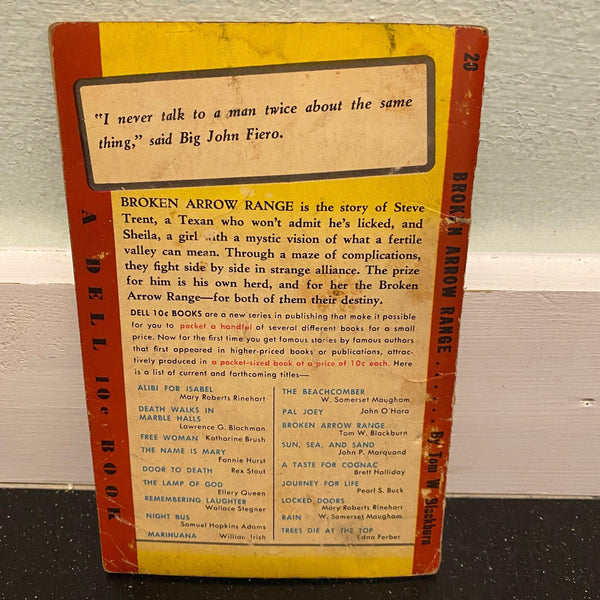 "I never talk to a man twice about the same
thing," said Big John Fiero.
BROKEN ARROW RANGE is the story of Steve
Trent, a Texan who won't admit he's licked, and
Sheila, a girl with a mystic vision of what a fertile
valley can mean. Through a maze of complications,
they fight side by side in strange alliance. The prize
for him is his own herd, and for her the Broken
Arrow Range—for both of them their destiny.
DELL 10c BOOKS are a new series in publishing that make it possible
for you to pocket a handful of several different books for a small
price. Now for the first time you get famous stories by famous authors
that first appeared in higher-priced books or publications, attrac-
tively produced in a pocket-sized book at a price of 10c each. Here
is a list of current and forthcoming titles—
ALIBI FOR ISABEL
Mary Roberts Rinehart
DEATH WALKS IN
MARBLE HALLS
Lawrence G. Blochman
FREE WOMAN Katharine Brush
THE NAME IS MARY
Fannie Hurst
DOOR TO DEATH Rex Stout
THE LAMP OF GOD
Ellery Queen
REMEMBERING LAUGHTER
Wallace Stegner
NIGHT BUS
Samuel Hopkins Adams
MARIHUANA William Irish
THE BEACHCOMBER
W. Somerset Maugham
PAL JOEY John O'Hara
BROKEN ARROW RANGE
Tom W. Blackburn
SUN, SEA, AND SAND
John P. Marquand
A TASTE FOR COGNAC
Brett Halliday
JOURNEY FOR LIFE
Pearl S. Buck
LOCKED DOORS
Mary Roberts Rinehart
RAIN W. Somerset Maugham
TREES DIE AT THE TOP
Edna Ferber
A DELL 10c BOOK
20 BROKEN ARROW RANGE . . . . . By Tom W. Blackburn